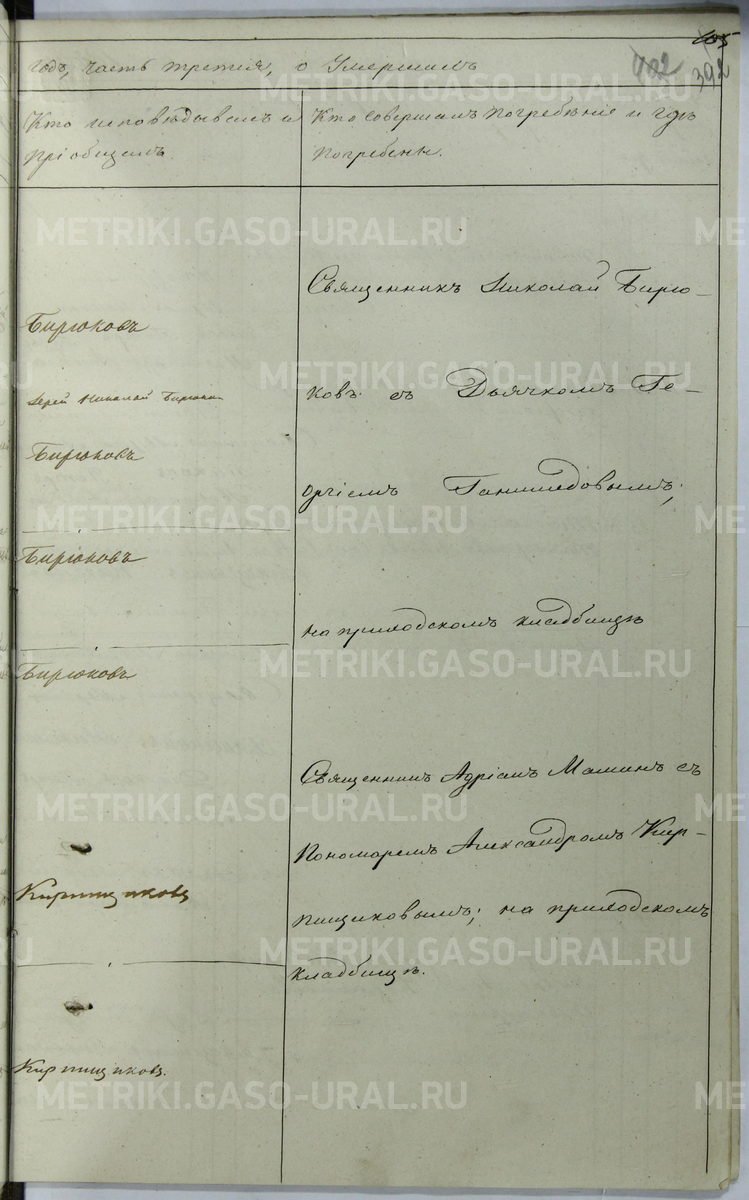 405
702
392
годъ, часть третія, о Умершихъ
Кто исповѣдывалъ и
пріобщалъ.
Кто совершалъ погребѣніе и гдѣ
погребены.
Священникъ Николай Бирю-
Бирюковъ
ковъ съ Дьячкомъ Ге-
Іерей Николай Бирюковъ
Бирюковъ
оргіемъ Ганимедовымъ;
Бирюковъ
на приходскомъ кладбищѣ
Бирюковъ
Священникъ Адріанъ Маминъ съ
Пономаремъ Александромъ Кир-
Кирпищиковъ
пищиковымъ; на приходскомъ
кладбищѣ.
Кирпищиковъ.
METRIKI.GASO-URAL.RU